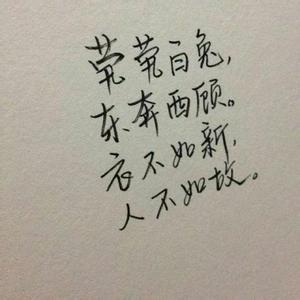 茕茕白兔,
东奔西顾。
衣不如新,
人不如故。